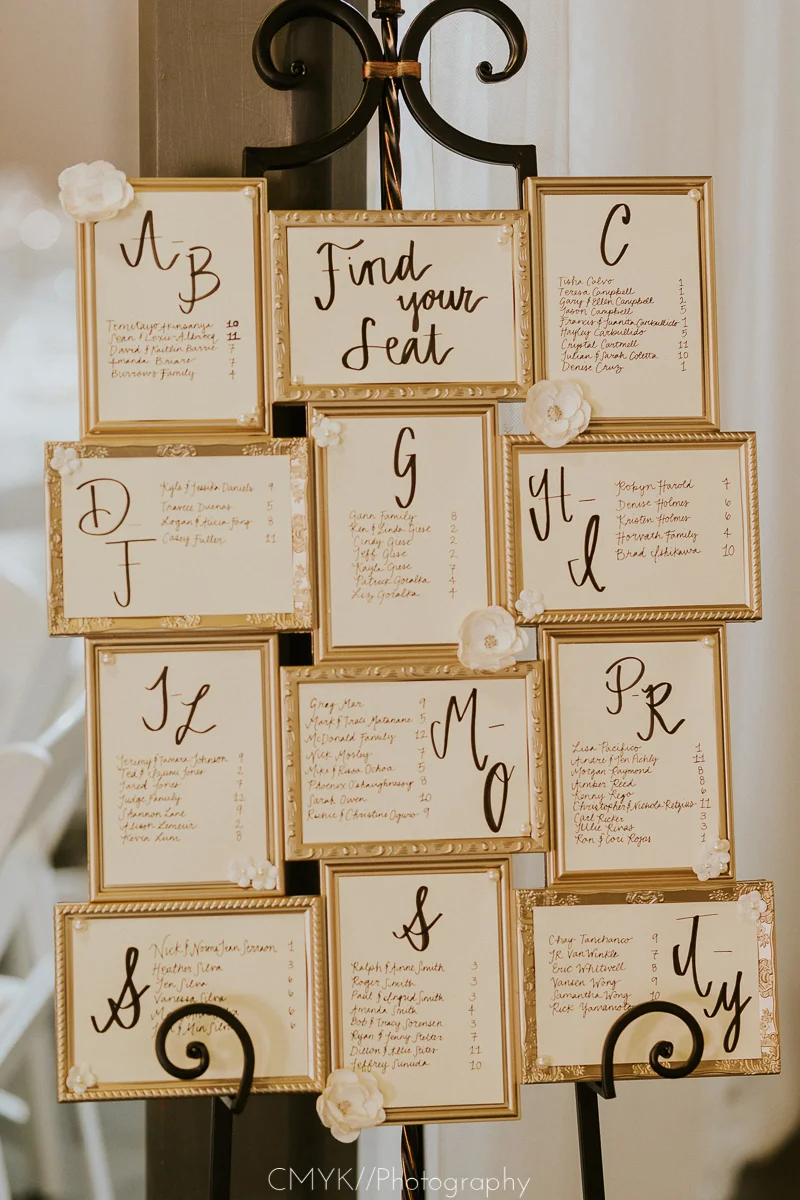 A-B
Temitayo Akinsanya 10
Sean & Lorie Albrecq 11
David & Kaitlin Barrie 7
Amanda Briare 7
Burrows Family 4
Find
your
Seat
C
Tisha Calvo 1
Teresa Campbell 1
Gary & Ellen Campbell 2
Jason Campbell 5
Francis & Juanita Carbullido 1
Hayley Carbullido 5
Crystal Cartmell 11
Julian & Sarah Coletta 10
Denise Cruz 1
D
F
Kyle & Jessika Daniels 9
Travell Duenas 5
Logan & Alicia Fong 8
Casey Fuller 11
G
Gann Family 8
Ken & Linda Giese 2
Cindy Giese 2
Jeff Giese 2
Kayla Giese 7
Patrick Goralka 4
Liz Goralka 4
H-I
Robyn Harold 7
Denise Holmes 6
Kristen Holmes 6
Horvath Family 4
Brad Ishikawa 10
J-L
Jeremy & Tamara Johnson 9
Ted & Jones 2
Jared Jones 7
Judge Family 12
Shannon Lane 9
Alison Lemeur 2
Kevin Lum 8
Greg Mar 9
Mark & Traci Matanane 5
McDonald Family 12
Nick Mosley 7
Mike & Rissa Ochoa 5
Phoenix Oshaughnessy 8
Sarah Owen 10
Richie & Christine Oguro 9
M-O
P-R
Lisa Pacifico 1
Andre & Jen Pickly 11
Morgan Raymond 8
Amber Reed 8
Kenny Rego 6
Christopher & Nichola Retzius 11
Carl Ricker 3
Julie Rivas 3
Ron & Cori Rojas 1
S
Nick & Norma Jean Serraon 1
Heather Silva 3
Jen Silva 6
Vanessa Silva 6
6
& Min Silva 6
S
Ralph & Anne Smith 3
Roger Smith 3
Paul & Ingrid Smith 3
Amanda Smith 4
Bob & Tracy Sorensen 3
Ryan & Jenny Stelter 7
Dillon & Allie Stites 11
Jeffrey Sunida 10
Chay Tanchanco 9
JR VanWinkle 7
Eric Whitwell 8
Vansen Wong 9
Samantha Wong 10
Rick Yamamoto
T-Y
CMYK//Photography